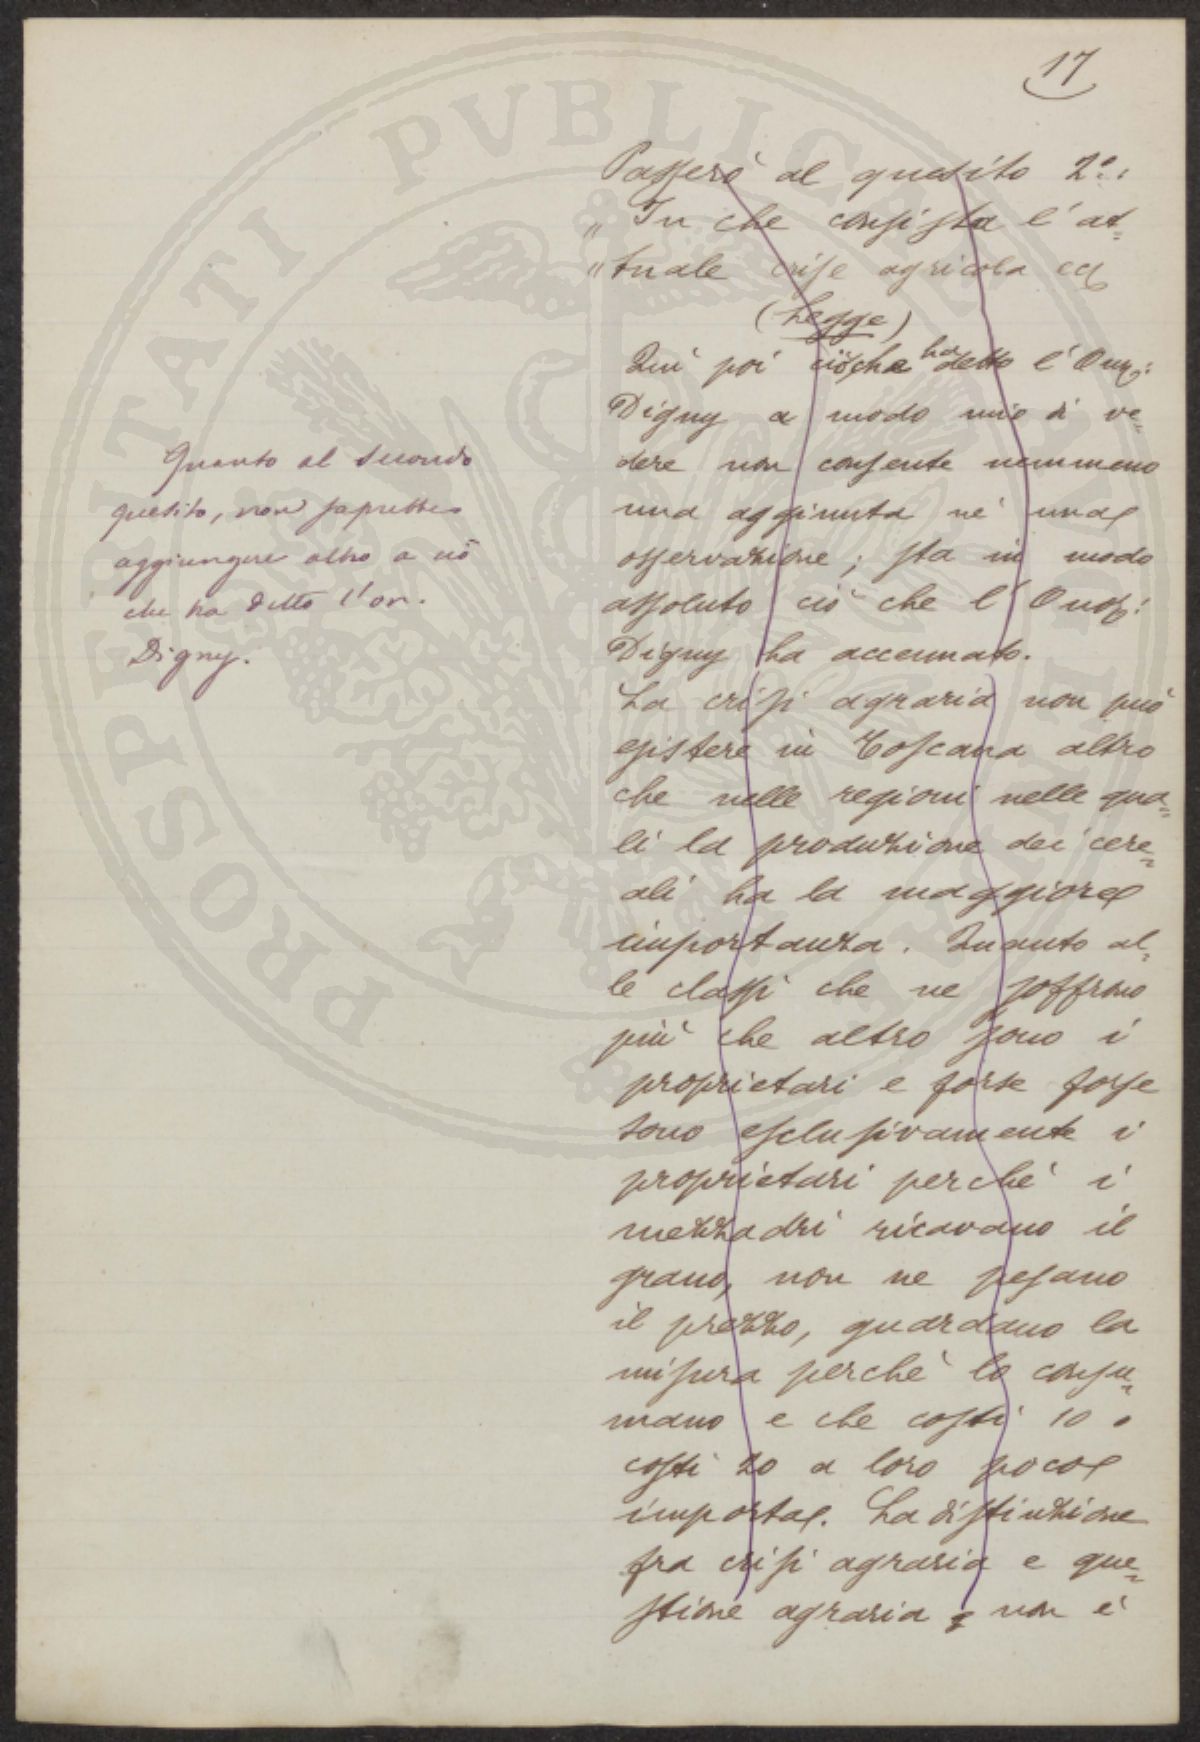 17
Passerò al quesito 2º:
" In che consista l'at-
" tuale crise agricola ecc
(Legge)
Qui poi ciò che ha detto l'Onor:
Digny a modo mio di ve-
dere non consente nemmeno
una aggiunta nè una
osservazione; sta in modo
assoluto ciò che l'Onor:
Digny ha accennato.
La crisi agraria non può
esistere in Toscana altro
che nelle regioni nelle qua-
li la produzione dei cere-
ali ha la maggiore
importanza. Quanto al-
le classi che ne soffrono
più che altro sono i
proprietari e forse forse
sono esclusivamente i
proprietari perchè i
mezzadri ricavano il
grano, non ne pesano
il prezzo, guardano la
misura perchè lo consu-
mano e che costi 10 o
costi 20 a loro poco
importa. La distinzione
fra crisi agraria e que-
stione agraria non è
Quanto al secondo
quesito, non saprebbe
aggiungere altro a ciò
che ha detto l'on.
Digny.
PROSPERITATI PVBLICAE